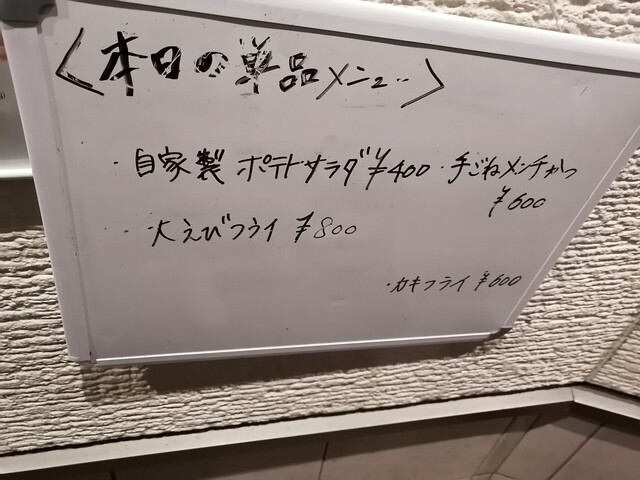 〈本日の単品メニュー〉
・自家製 ポテトサラダ ¥400
・手ごねメンチかつ
¥600
・大えびフライ ¥800
・カキフライ ¥600